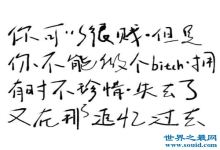 你可以很贱·但是
你·不能做个bitch·拥
有时不珍惜·失去了
又在那追忆过去
世界之最网
www.souid.com